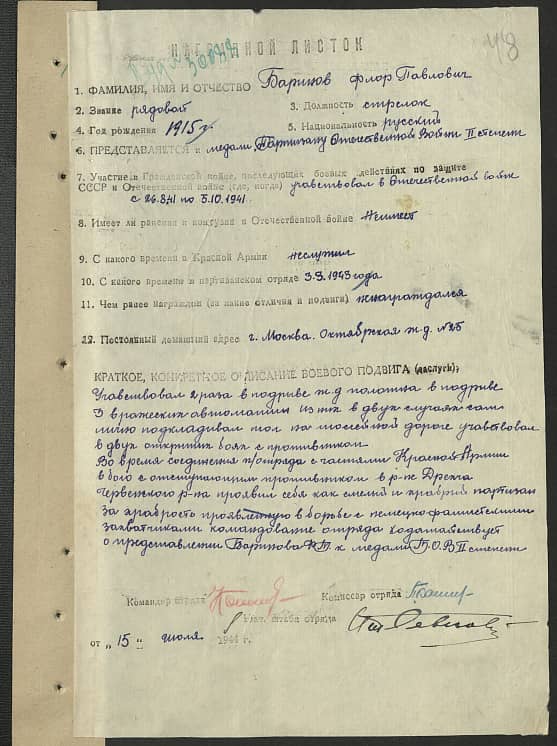 НАГРАДНОЙ ЛИСТОК
48
1. ФАМИЛИЯ, ИМЯ И ОТЧЕСТВО Баринов Флор Павлович
2. Звание рядовой 3. Должность стрелок
4. Год рождения 1915 г. 5. Национальность русский
6. ПРЕДСТАВЛЯЕТСЯ к медали Партизану Отечественной Войны II степени
7. Участие в Гражданской войне, последующих боевых действиях по защите
СССР и Отечественной войне (где, когда) участвовал в Отечественной войне
с 26.8.41 по 5.10.1941.
8. Имеет ли ранения и контузии в Отечественной войне Неимеет
9. С какого времени в Красной Армии неслужил
10. С какого времени в партизанском отряде 3.3.1943 года
11. Чем ранее награжден (за какие отличия и подвиги) ненаграждался
12. Постоянный домашний адрес г. Москва. Октябрская ж.д. №25
КРАТКОЕ, КОНКРЕТНОЕ ОПИСАНИЕ БОЕВОГО ПОДВИГА (заслуги);
Учавствовал 2 раза в подриве ж.д полотна в подриве
3 вражеских автомашин из них в двух случаях сам
лично подкладывал тол на шоссейной дороге учавствовал
в двух открытых боях с противником
Во время соединения п/отряда с частями Красной Армии
в бою с отступающим противником в р-не
Червенского р-на проявил себя как смелый и храбрый партизан
за храбрость проявленную в борьбе с немецко фашистскими
захватчиками командование отряда ходатайствует
о представлении Баринова к медали П.О.В II степени
Командир отряда Комиссар отряда
Нач. штаба отряда
от „ 15 " июля 1944 г.